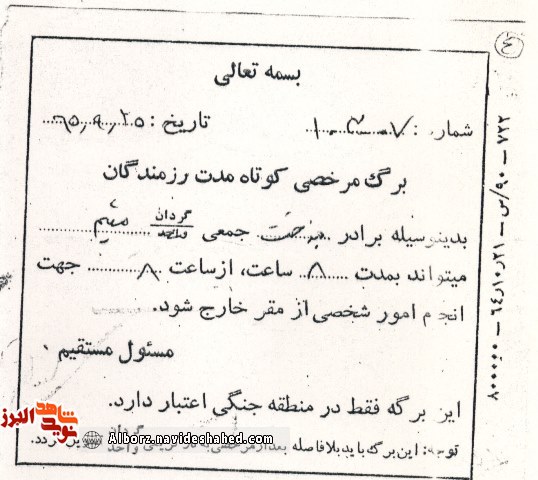 ۴
بسمه تعالی
شماره: ۱۰۳۰۷
تاریخ: ۶۵٫۹٫۲۵
برگ مرخصی کوتاه مدت رزمندگان
بدینوسیله برادر جمعی گردان واحد میثم
میتواند بمدت ۸ ساعت، از ساعت ۸ جهت
انجام امور شخصی از مقر خارج شود.
مسئول مستقیم
این برگه فقط در منطقه جنگی اعتبار دارد.
توجه: این برگ باید بلافاصله بعد از مرخصی به گردان واحد گردد.
۷۲۲ – ۹۰/س – ۶۴٫۱۰٫۲۱ – ۸۰۰۰۰۰
شاهد البرز
نوید
Alborz.navideshahed.com